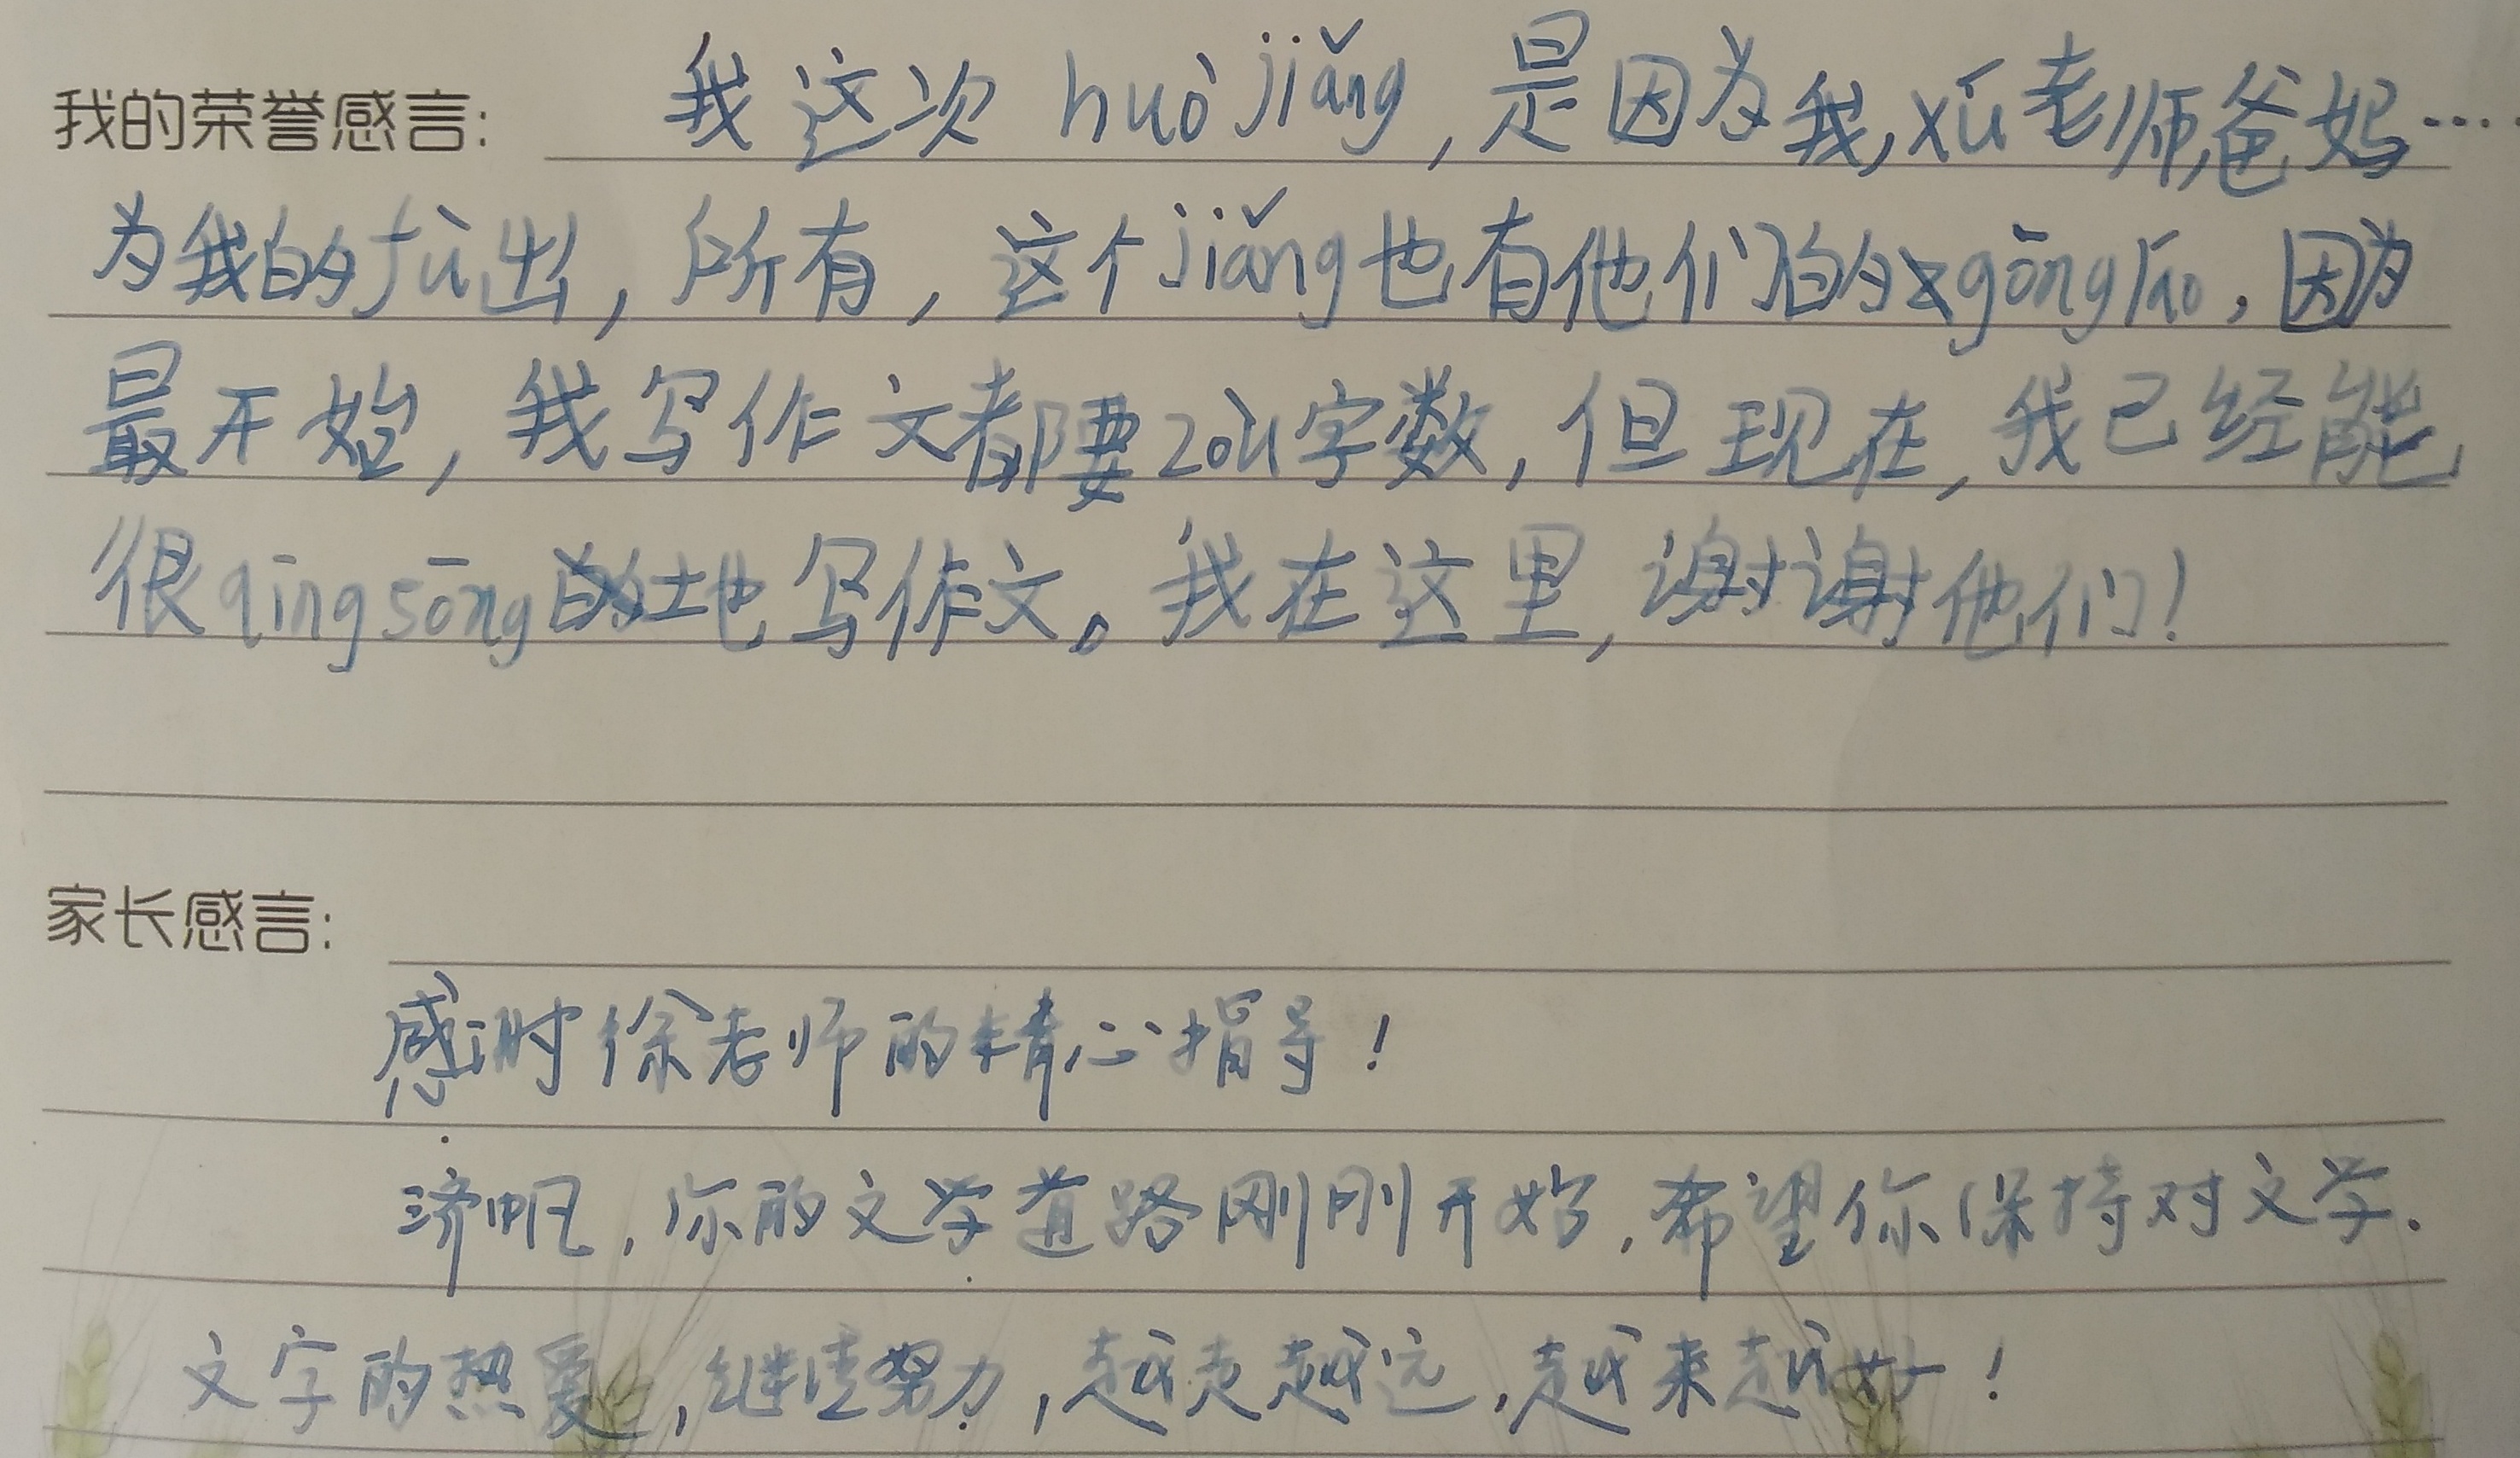 我的荣誉感言: 我这次 huò jiǎng,是因为我,xú老师,爸妈……
为我的fù出,所有,这个jiǎng也有他们的gōng láo,因为
最开始,我写作文都要còu字数,但现在,我已经能
很qīng sōng地写作文。我在这里,谢谢他们!
家长感言:
感谢徐老师的精心指导!
济帆,你的文学道路刚刚开始,希望你保持对文学.
文字的热爱,继续努力,越走越远,越来越好!